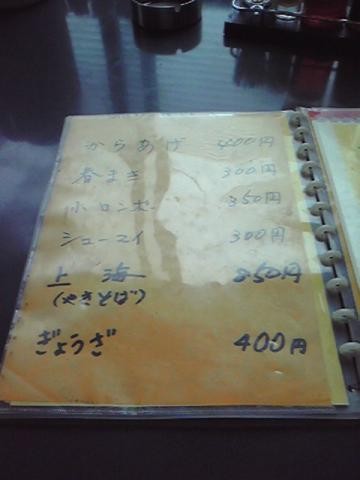 からあげ 400円
春まき 300円
小ロンポー 350円
シューマイ 300円
上海 850円
(やきそば)
ぎょうざ 400円